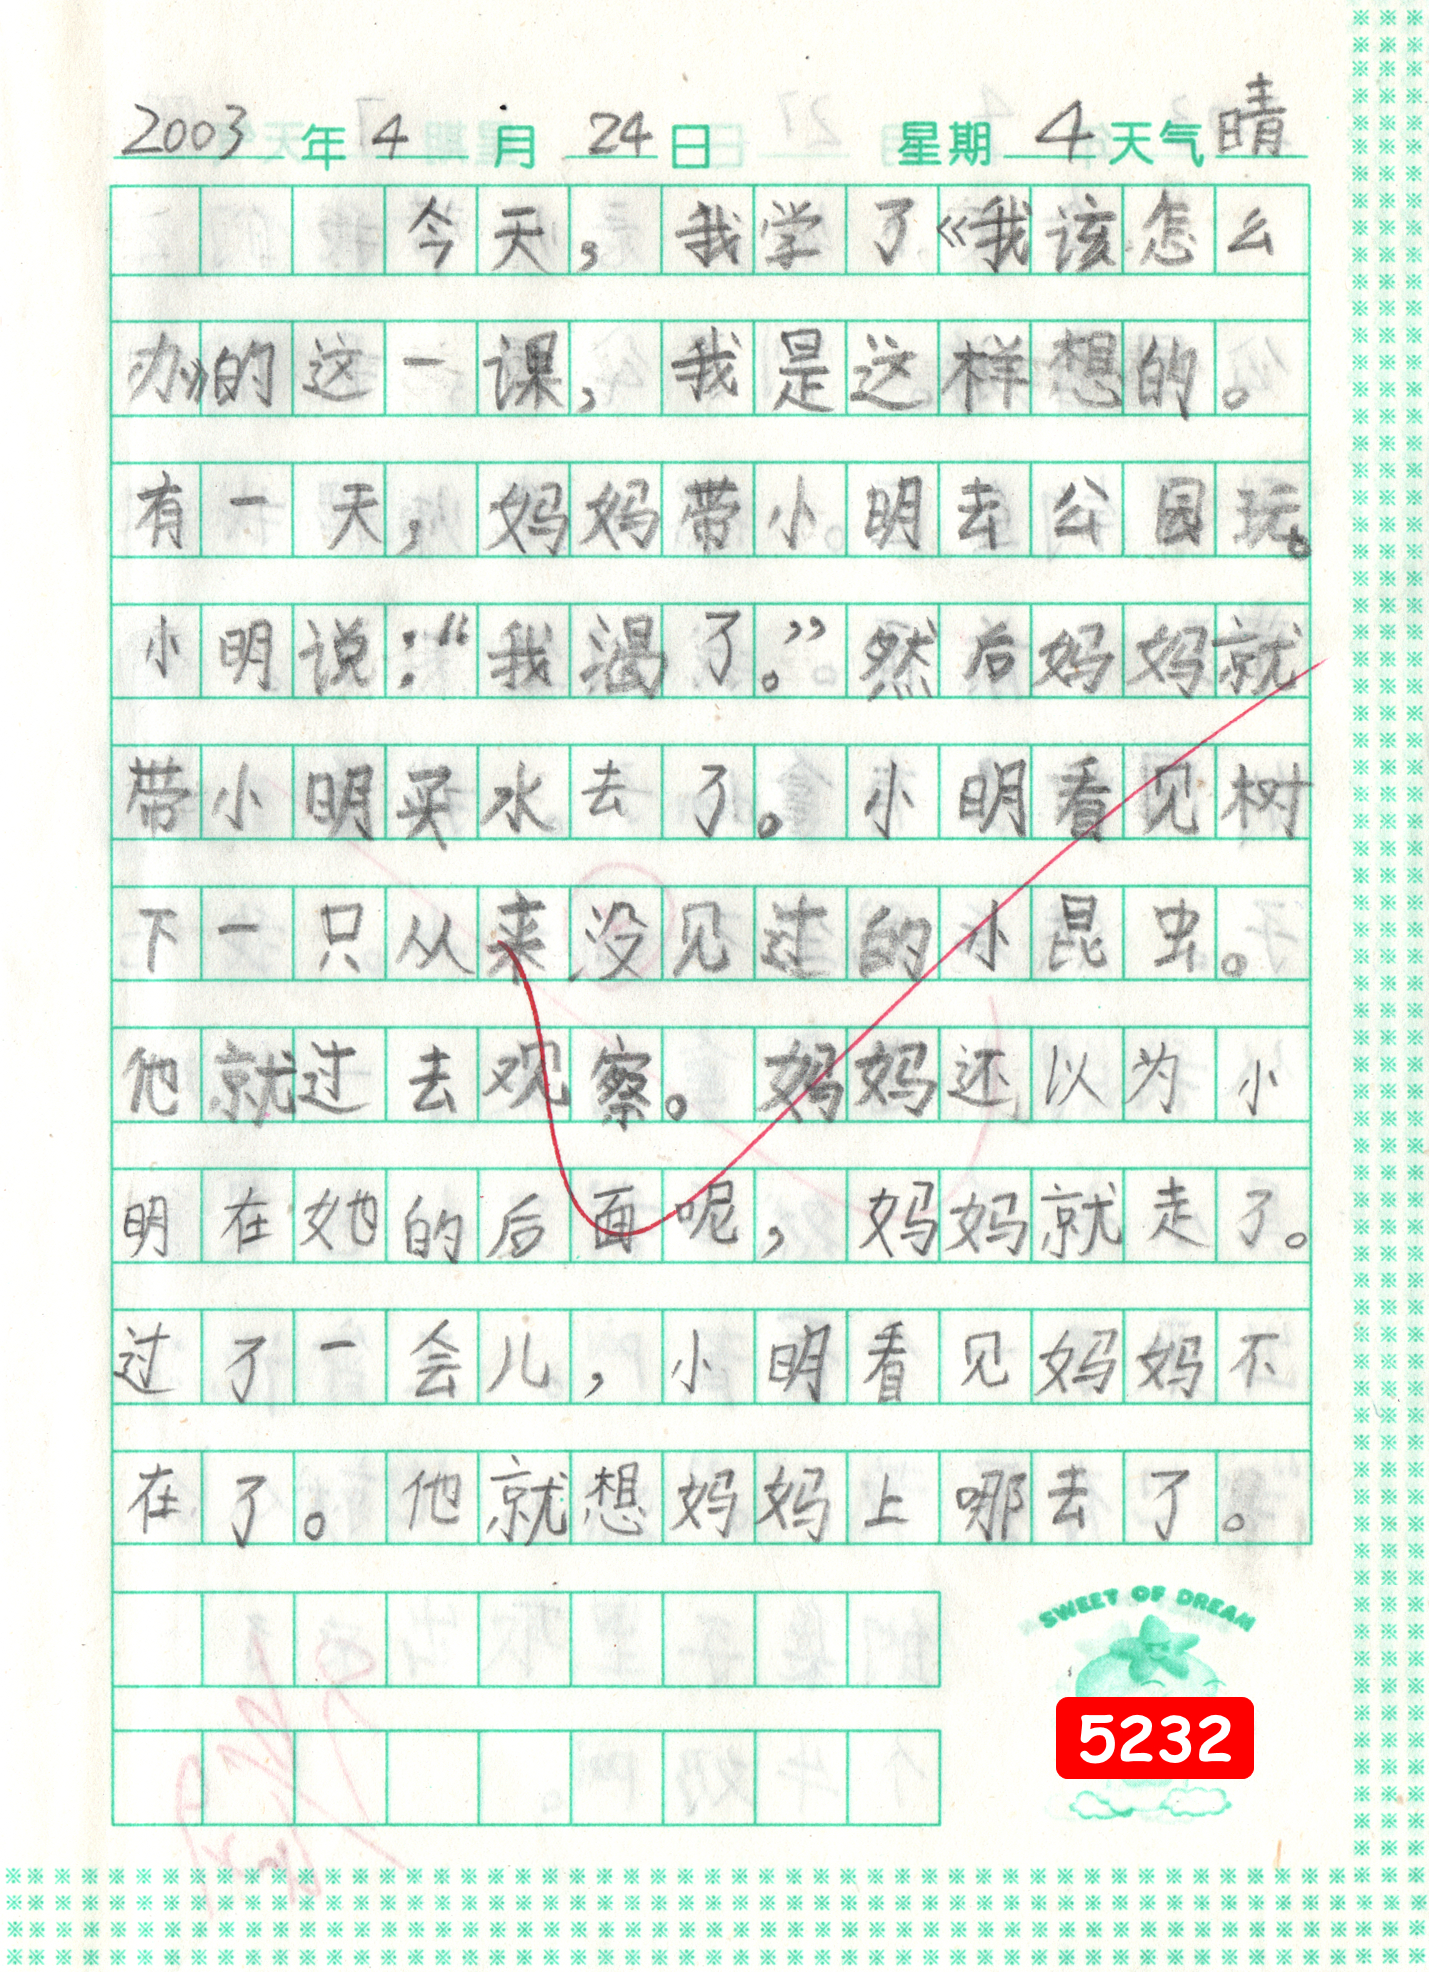 2003年4月24日 星期4天气晴
今天，我学了《我该怎么
办》的这一课，我是这样想的。
有一天，妈妈带小明去公园玩。
小明说：“我渴了。”然后妈妈就
带小明买水去了。小明看见树
下一只从来没见过的小昆虫。
他就过去观察。妈妈还以为小
明在她的后面呢，妈妈就走了。
过了一会儿，小明看见妈妈不
在了。他就想妈妈上哪去了。
SWEET OF DREAM
5232